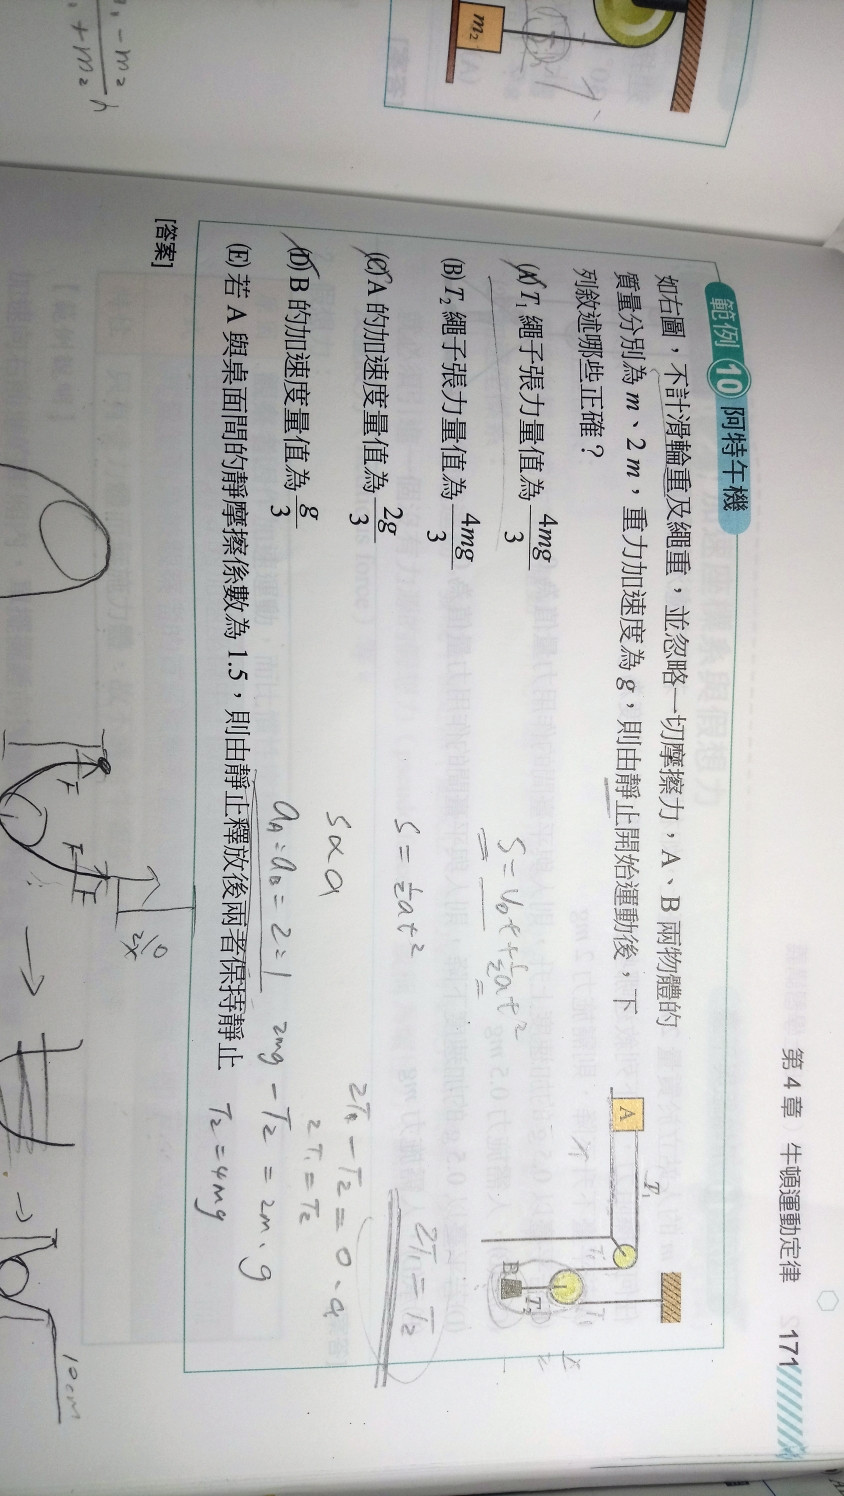 第 4 章 牛頓運動定律 171
範例 10 阿特午機
如右圖，不計滑輪重及繩重，並忽略一切摩擦力，A、B 兩物體的
質量分別為 m、2m，重力加速度為 g，則由靜止開始運動後，下
列敘述哪些正確？
(A) T₁ 繩子張力量值為 4mg/3
(B) T₂ 繩子張力量值為 4mg/3
(C) A 的加速度量值為 2g/3
(D) B 的加速度量值為 g/3
(E) 若 A 與桌面間的靜摩擦係數為 1.5，則由靜止釋放後兩者保持靜止
[答案]
A
T₁
T₁
B
T₂
S = V₀t + ½at²
S = ½at²
S∝a
a_A : a_B = 2 : 1
2T₁ = T₂
2T₁ - T₂ = 0 · a
2T₁ = T₂
2mg - T₂ = 2m · g
T₂ = 4mg
10cm
m₂